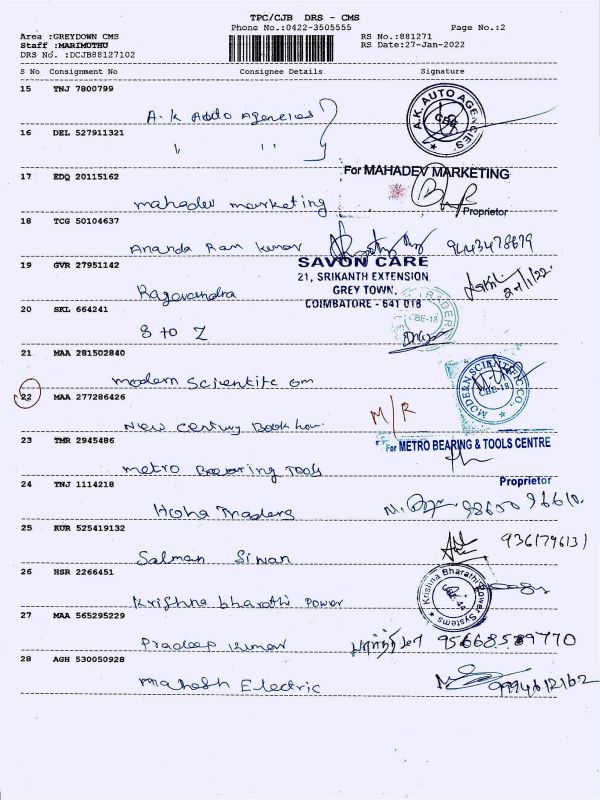 TPC/CJB DRS - CMS
Phone No.:0422-3505555 Page No.:2
Area :GREYDOWN CMS RS No.:881271
Staff :MARIMUTHU RS Date:27-Jan-2022
DRS No. :DCJB88127102
S No Consignment No Consignee Details Signature
15 TNJ 7800799
A.K Auto Agencies
A.K. AUTO AGENCIES CBE
16 DEL 527911321
" "
17 EDQ 20115162
For MAHADEV MARKETING
mahadev marketing
Proprietor
18 TCG 50104637
Ananda Ram kumar 9443478679
19 GVR 27951142
SAVON CARE
21, SRIKANTH EXTENSION,
GREY TOWN,
COIMBATORE - 641 018
Ragavandra 27/1/22
20 SKL 664241
CBE-18
S to Z
21 MAA 281502840
modern Scientific om
MODERN SCIENTIFIC CO. CBE-18
22 MAA 277286426
New Century Book hou M/R
23 TMR 2945486
For METRO BEARING & TOOLS CENTRE
metro Bearing Tools
Proprietor
24 TNJ 1114218
Traders 98600 96610
25 KUR 525419132
9361796131
Salman Sinan
26 HSR 2266451
Krishna Bharathi Power Systems
Krishna bharathi power
27 MAA 565295229
Pradeep Kumar
28 AGH 530050928
Mahesh Electric 9994612162